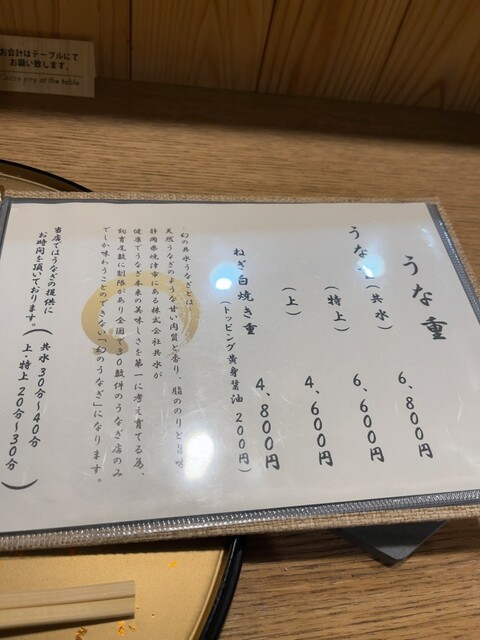 お会計はテーブルにて
お願い致します。
pay at the table
うな重
うな
(共水) 6,800円
(特上) 6,600円
(上) 4,600円
ねぎ白焼き重 4,800円
(トッピング黄身醤油 200円)
幻の共水うなぎとは
天然うなぎのような甘い肉質と香り、脂ののりと旨味
静岡県焼津市にある株式会社共水が
健康でうなぎ本来の美味しさを第一に考え育てる為、
飼育尾数に制限があり全国で30数件のうなぎ店のみ
でしか味わうことのできない「幻のうなぎ」になります。
当店ではうなぎの提供に
お時間を頂いております。
(共水 30分〜40分
上・特上 20分〜30分)